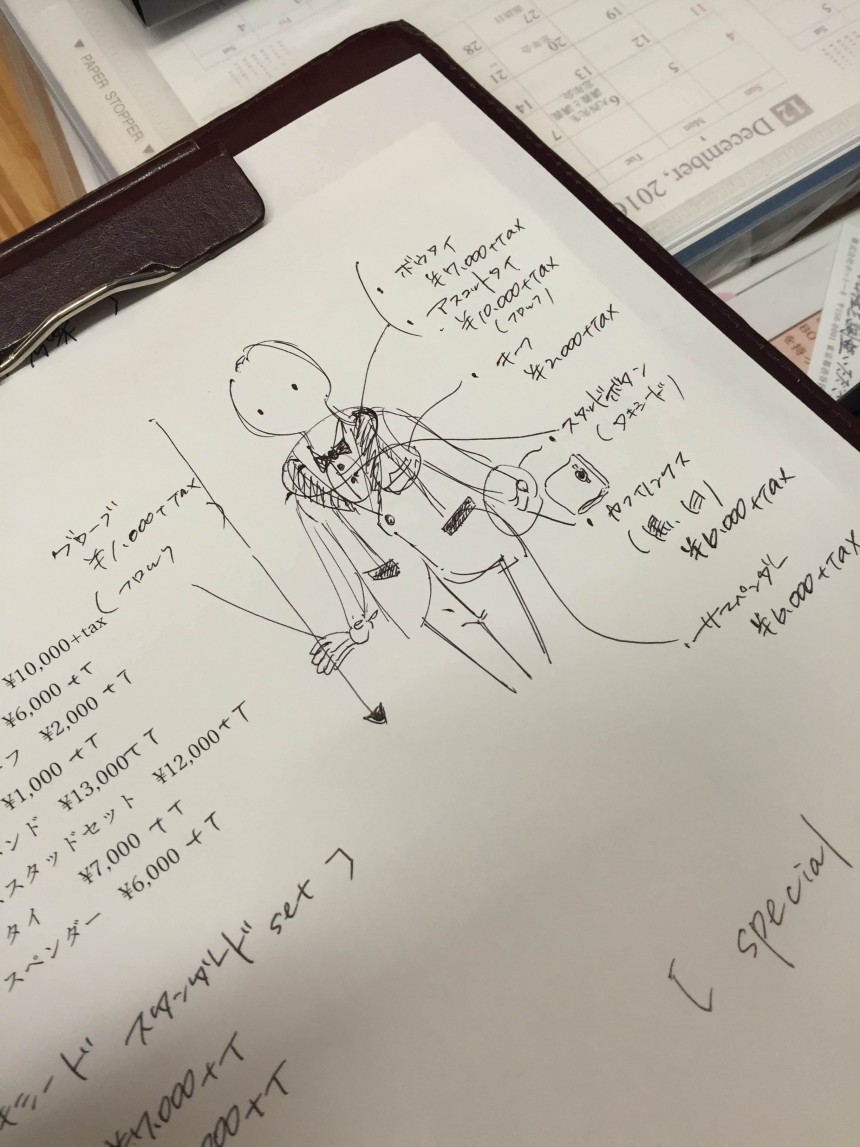 ▼ PAPER STOPPER ▼
12 December, 2016
Sun
Mon
Tue
4
5
6
7
11
12
13
14
19
20
21
27
28
ボウタイ
¥7,000+Tax
アスコットタイ
¥10,000+Tax
(フロック)
チーフ
¥2,000+Tax
スタッドボタン
(タキシード)
カフスリンクス
(黒、白)
¥6,000+Tax
サスペンダー
¥6,000+Tax
グローブ
¥1,000+Tax
(フロック
¥10,000+tax
¥6,000 +T
フ ¥2,000 +T
¥1,000 +T
ンド ¥13,000+T
スタッドセット ¥12,000+T
タイ ¥7,000 +T
スペンダー ¥6,000 +T
シード スタンダード set 〕
¥7,000+T
000+T
〔 special